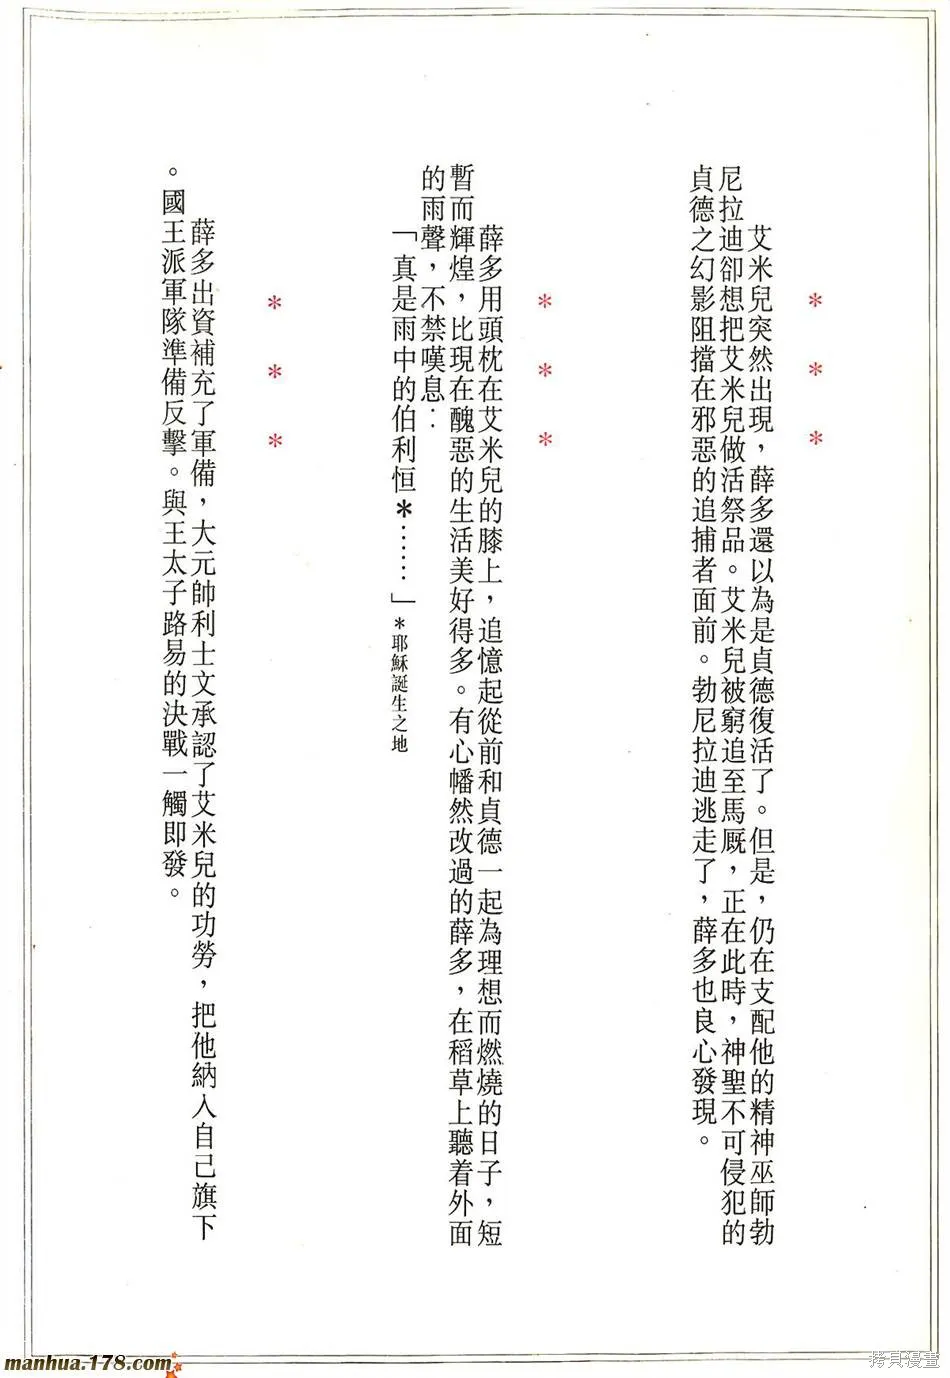 ＊ ＊ ＊
艾米兒突然出現，薛多還以為是貞德復活了。但是，仍在支配他的精神巫師勃
尼拉迪卻想把艾米兒做活祭品。艾米兒被窮追至馬厩，正在此時，神聖不可侵犯的
貞德之幻影阻擋在邪惡的追捕者面前。勃尼拉迪逃走了，薛多也良心發現。
＊ ＊ ＊
薛多用頭枕在艾米兒的膝上，追憶起從前和貞德一起為理想而燃燒的日子，短
暫而輝煌，比現在醜惡的生活美好得多。有心幡然改過的薛多，在稻草上聽着外面
的雨聲，不禁嘆息：
「真是雨中的伯利恒＊……」＊耶穌誕生之地
＊ ＊ ＊
薛多出資補充了軍備，大元帥利士文承認了艾米兒的功勞，把他納入自己旗下
。國王派軍隊準備反擊。與王太子路易的決戰一觸即發。
manhua.178.com
拷貝漫畫